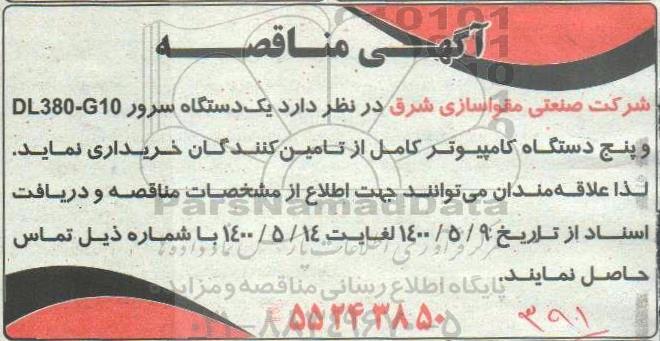 آگهـی مناقصه
شرکت صنعتی مقواسازی شرق در نظر دارد یک دستگاه سرور DL380-G10
و پنج دستگاه کامپیوتر کامل از تامین‌کنندگان خریداری نماید.
لذا علاقه‌مندان می‌توانند جهت اطلاع از مشخصات مناقصه و دریافت
ParsNamadData
اسناد از تاریخ ۱۴۰۰/۵/۹ لغایت ۱۴۰۰/۵/۱۴ با شماره ذیل تماس
حاصل نمایند.
پایگاه اطلاع رسانی مناقصه و مزایده
۵۵۲۴۳۸۵۰
۳۹۱